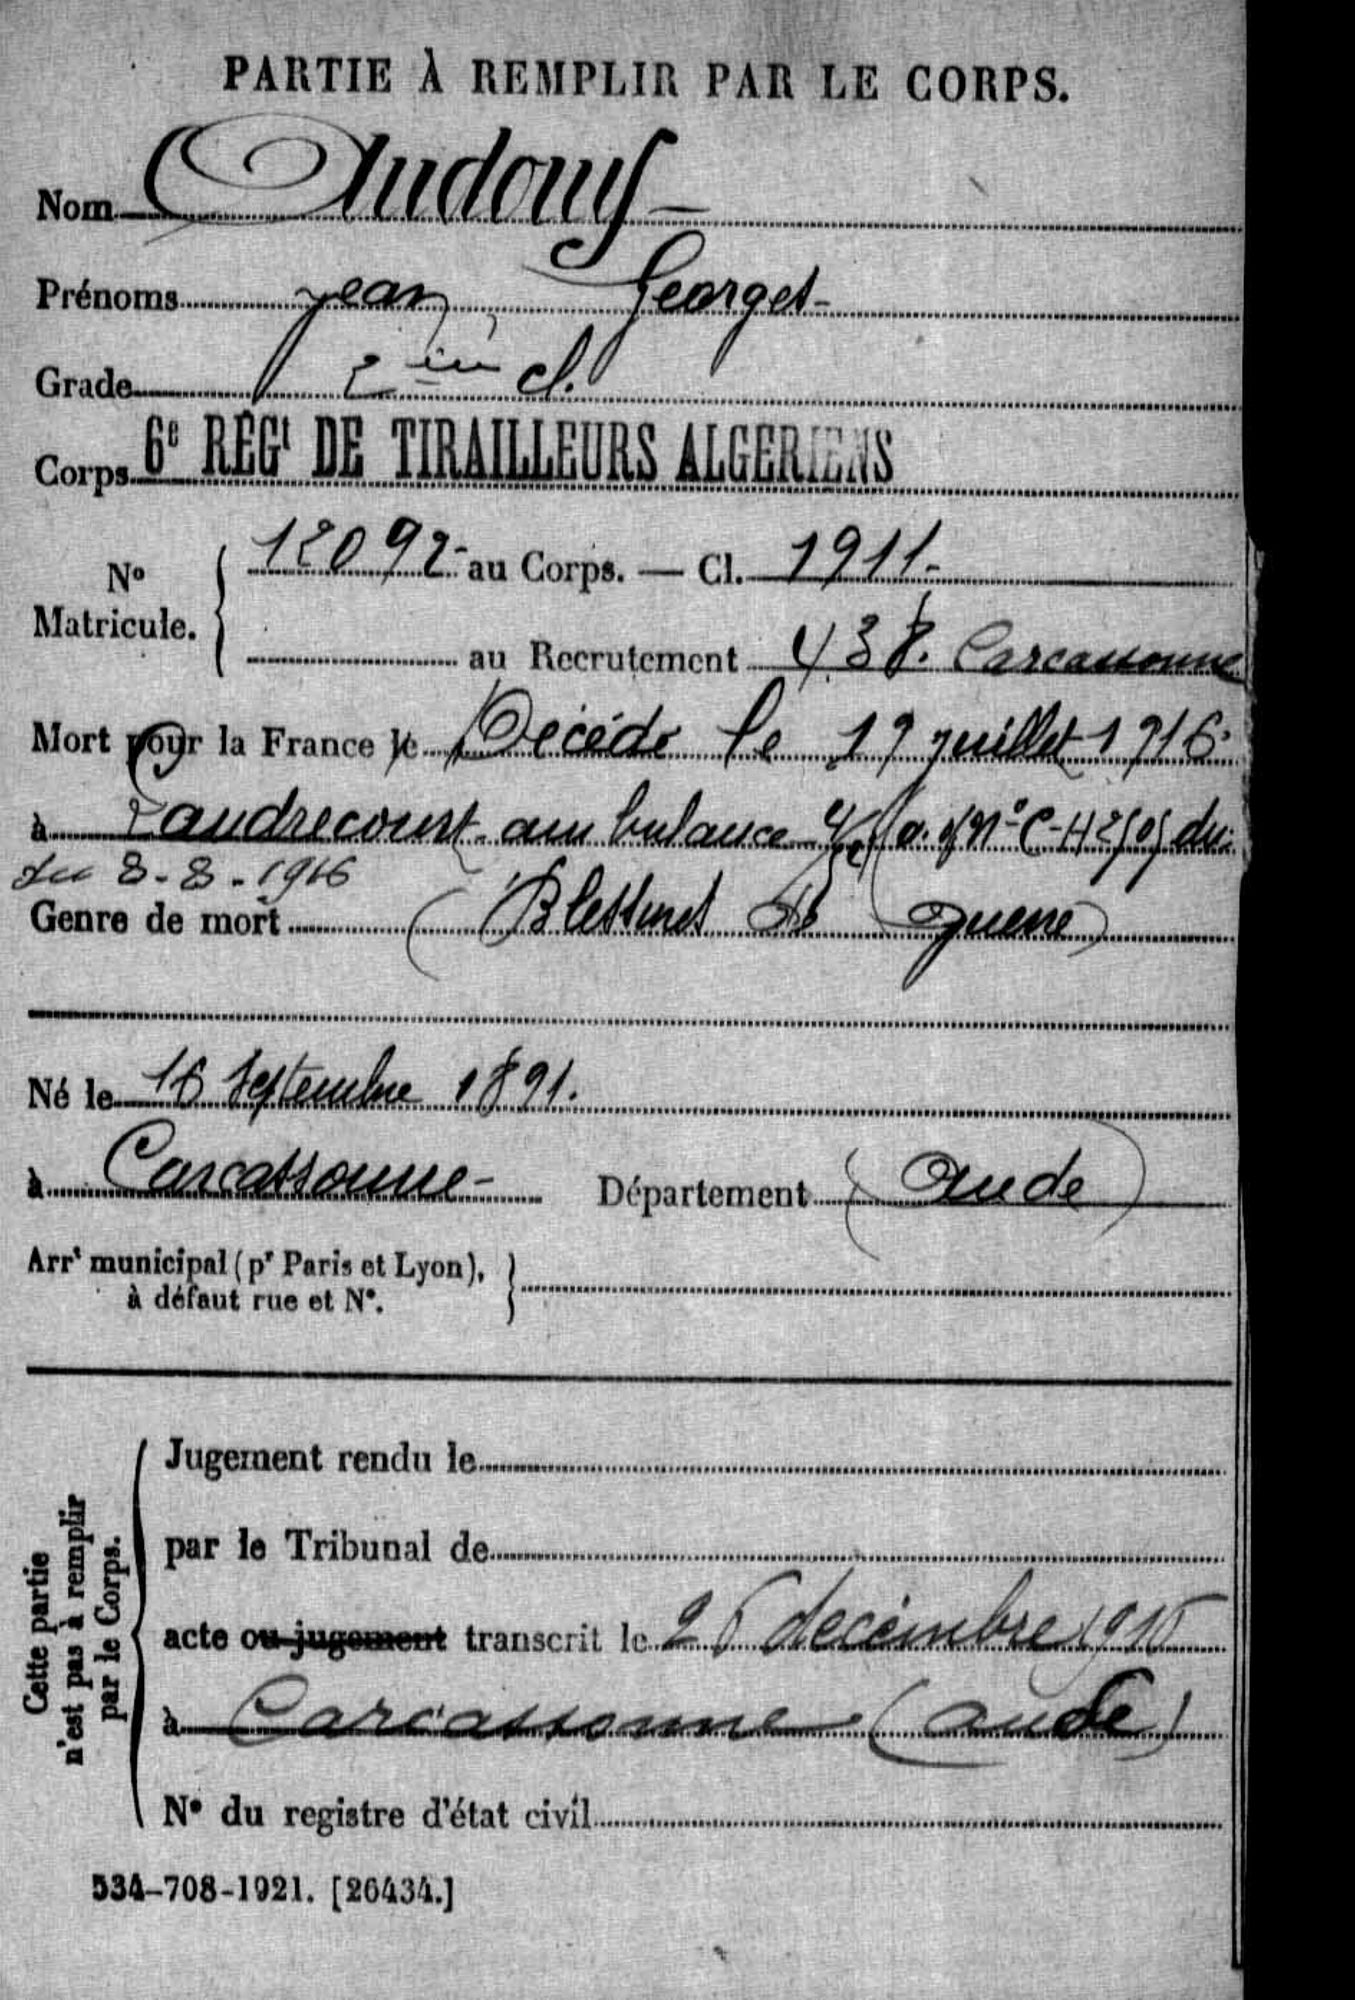 PARTIE À REMPLIR PAR LE CORPS.
Nom Audouy
Prénoms Jean, Georges
Grade 2ème cl.
Corps 6e RÉGt DE TIRAILLEURS ALGERIENS
No Matricule. 12092 au Corps. — Cl. 1911.
au Recrutement 438. Carcassonne
Mort pour la France le Décédé le 19 juillet 1916.
à Landrecourt ambulance du
du 8-8-1916
Genre de mort (Blessures de guerre)
Né le 16 Septembre 1891.
à Carcassonne - Département (Aude)
Arrt municipal (pr Paris et Lyon),
à défaut rue et No.
Cette partie
n'est pas à remplir
par le Corps.
Jugement rendu le
par le Tribunal de
acte ou jugement transcrit le 26 décembre 1916
à Carcassonne (Aude)
No du registre d'état civil
534-708-1921. [26434.]